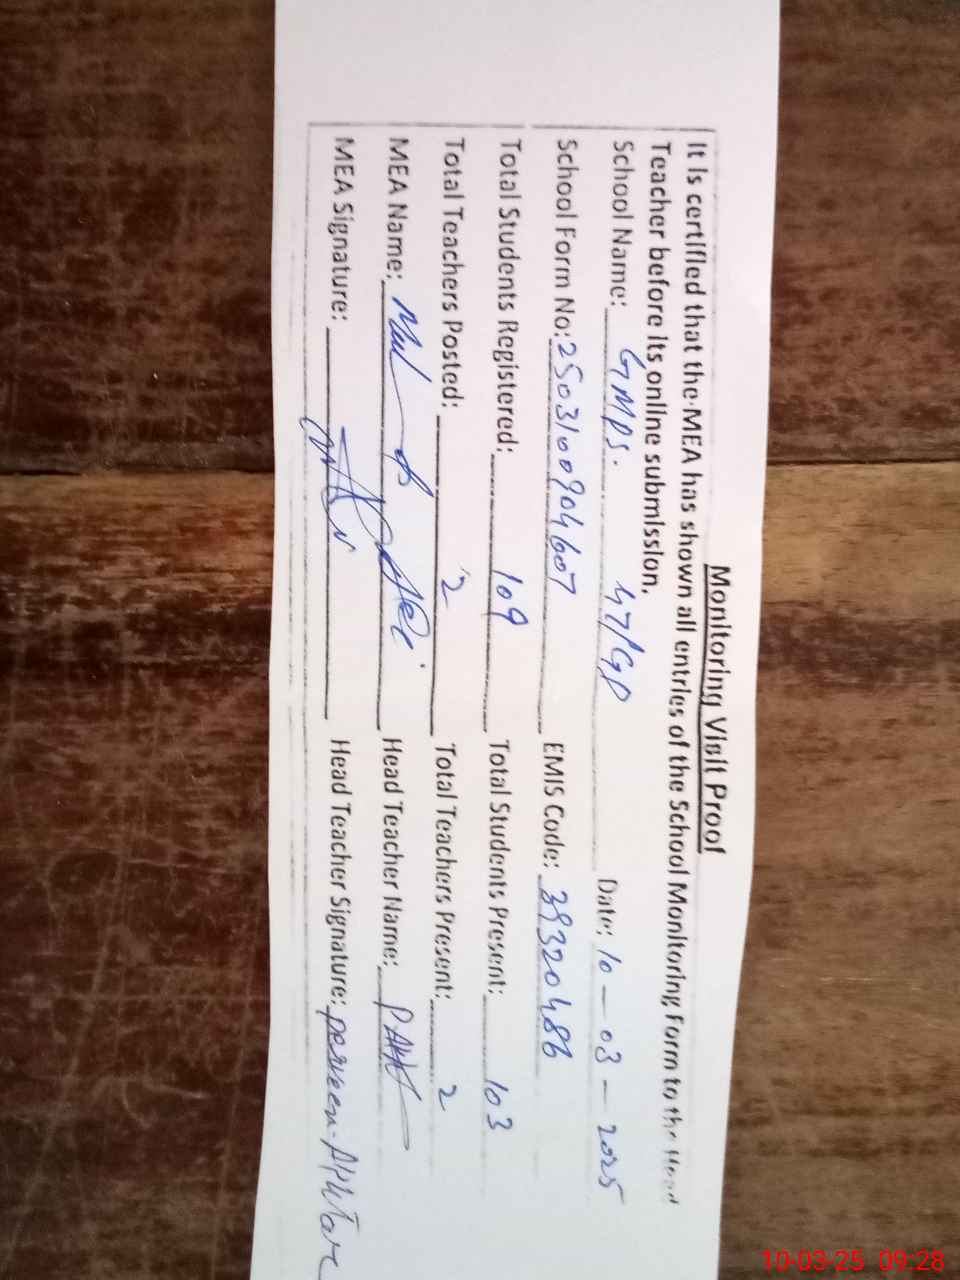 Monitoring Visit Proof
It is certified that the MEA has shown all entries of the School Monitoring Form to the Head
Teacher before its online submission.
School Name: GMPS. 47/GD Date: 10-03-2025
School Form No: 2503100904607 EMIS Code: 39320486
Total Students Registered: 109 Total Students Present: 103
Total Teachers Posted: 2 Total Teachers Present: 2
MEA Name: Head Teacher Name:
MEA Signature: Head Teacher Signature: perveen Akhtar
10-03-25 09:28